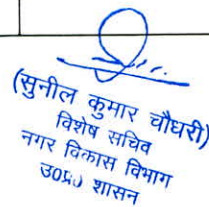 (सुनील कुमार चौधरी)
विशेष सचिव
नगर विकास विभाग
उ०प्र० शासन